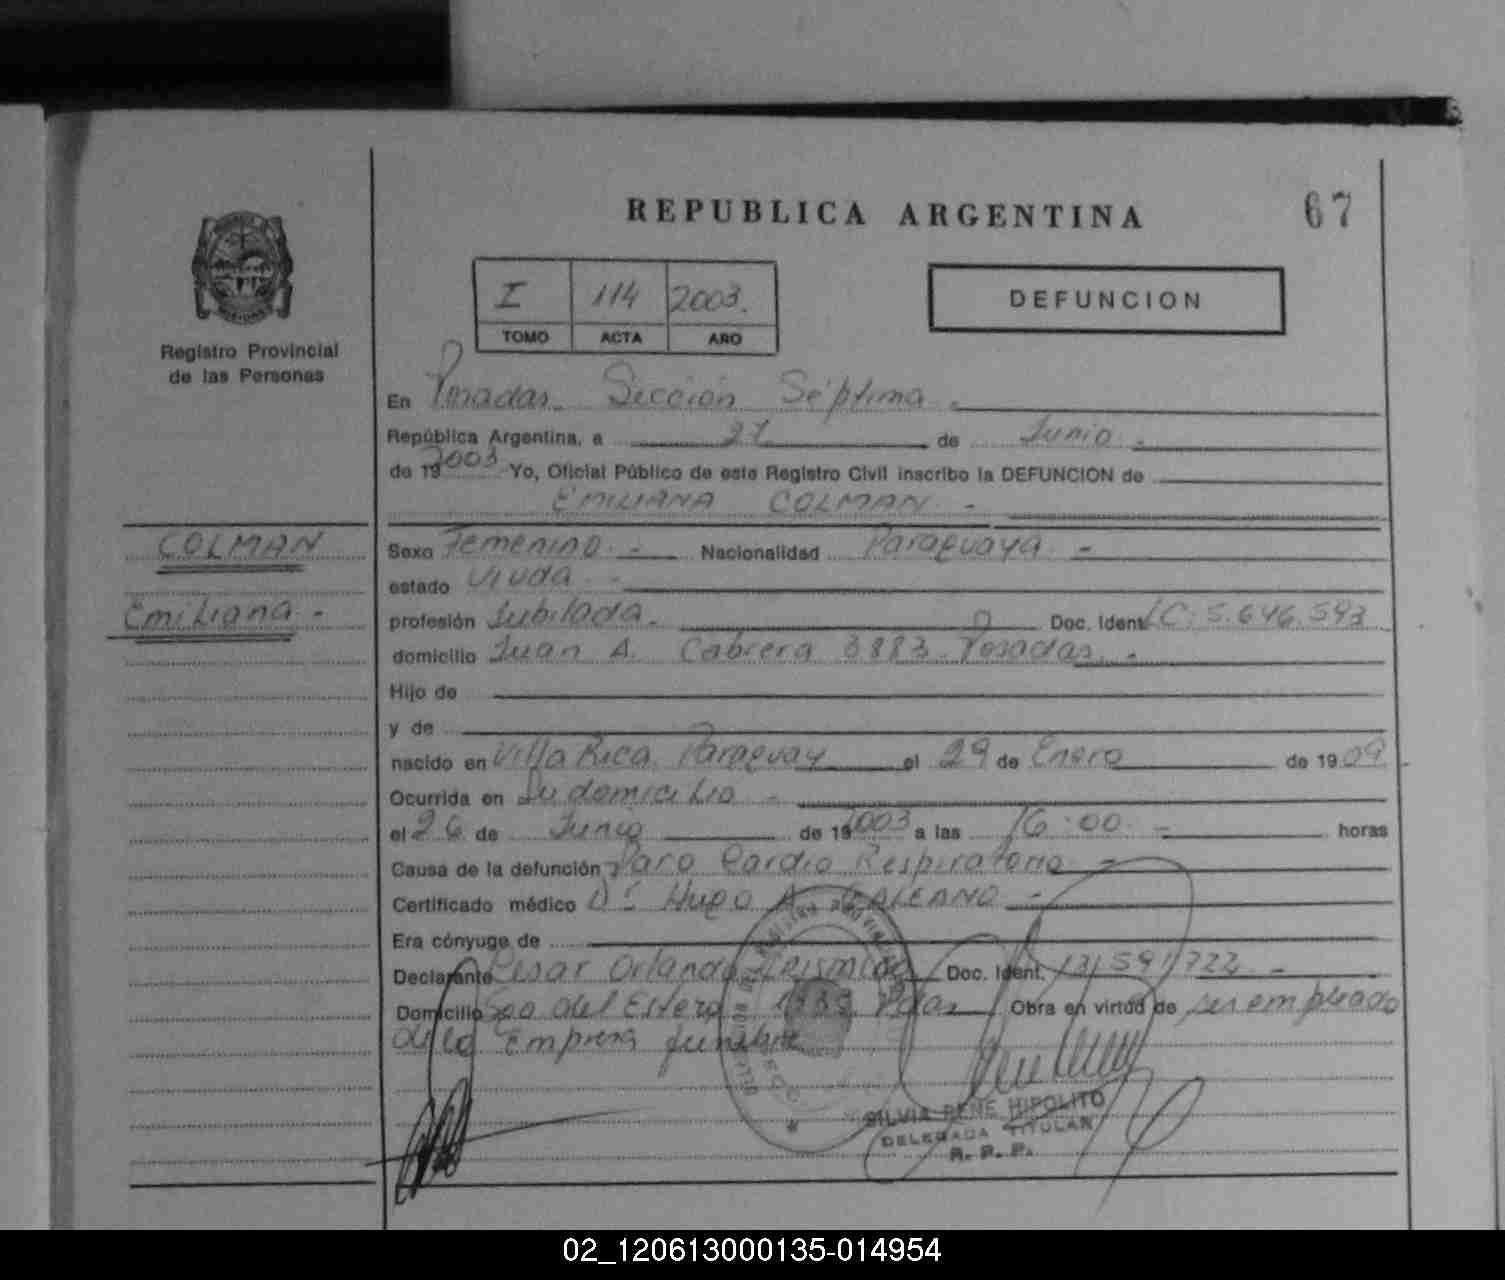 REPUBLICA ARGENTINA
67
I 114 2003.
TOMO ACTA AÑO
DEFUNCION
Registro Provincial
de las Personas
En Posadas. Sección Séptima.
República Argentina, a 27 de Junio.
de 19 2003 Yo, Oficial Público de este Registro Civil inscribo la DEFUNCION de
EMILIANA COLMAN -
COLMAN
Emiliana -
Sexo Femenino. - Nacionalidad Paraguaya. -
estado Viuda. -
profesión Jubilada. Doc. Ident. LC: 5.646.593
domicilio Juan A. Cabrera 3883. Posadas. -
Hijo de
y de
nacido en Villa Rica, Paraguay el 29 de Enero de 19 09
Ocurrida en Su domicilio -
el 26 de Junio de 19 2003 a las 16:00. - horas
Causa de la defunción Paro Cardio Respiratorio -
Certificado médico Dr. Hugo A. GALEANO -
Era cónyuge de
Declarante Cesar Orlando Doc. Ident. 13.591.722. -
Domicilio Sgo del Estero Pdas Obra en virtud de ser empleado
de la Empresa funebre
SILVIA RENE HIPOLITO
DELEGADA TITULAR
R. P. P.
02_120613000135-014954